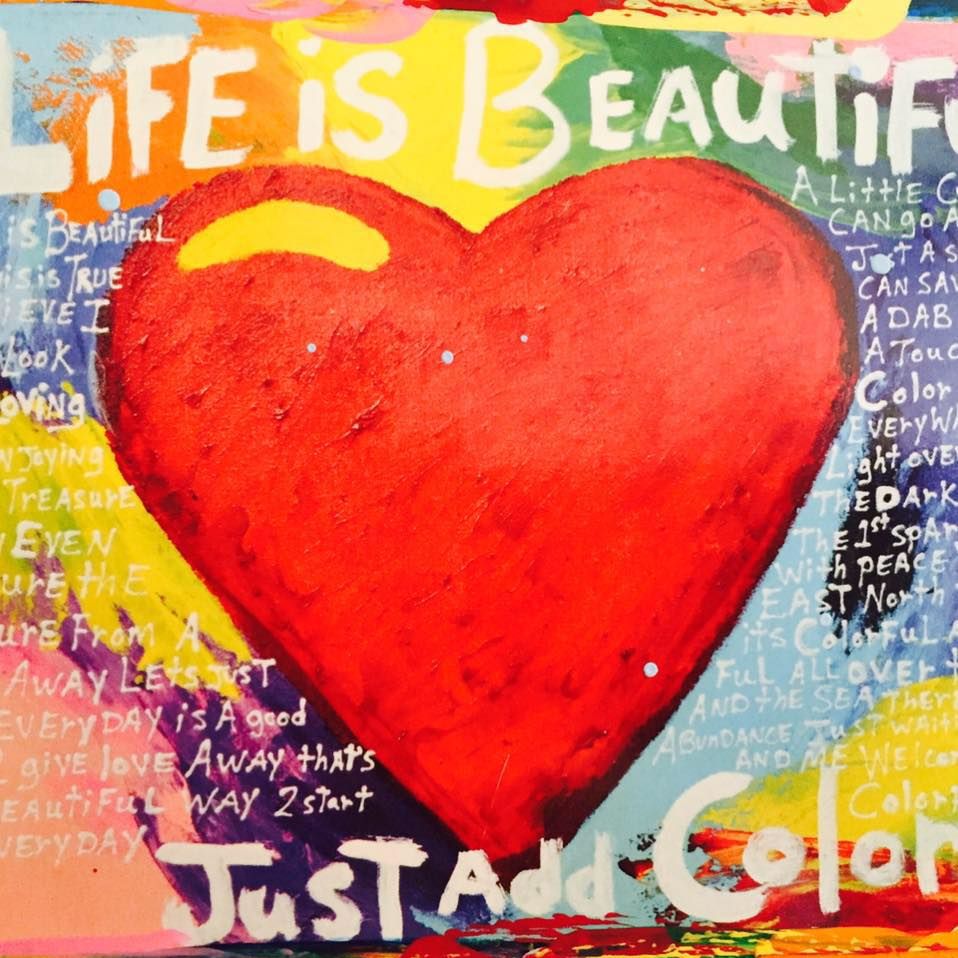 LiFE is BEAUTiFU
is BEAUtiFuL
is is TRUE
iEVE I
Look
oving
njoying
TREASURE
EVEN
URE thE
URE From A
AWAY LEts JUST
EVERYDAY is A good
give love AWAY that's
EAUtiFUL WAY 2 start
VERYDAY
A LittLE C
CAN go A
Just A S
CAN SAV
A DAB
A Touc
Color
EVEryWh
Light over
The DArK
The 1st spar
With PEACE
EAST North
its ColorFuL A
FuL ALL over t
AND the SEA ther
ABunDANCE Just waiti
AND ME WElcom
Color
JusT Add Color